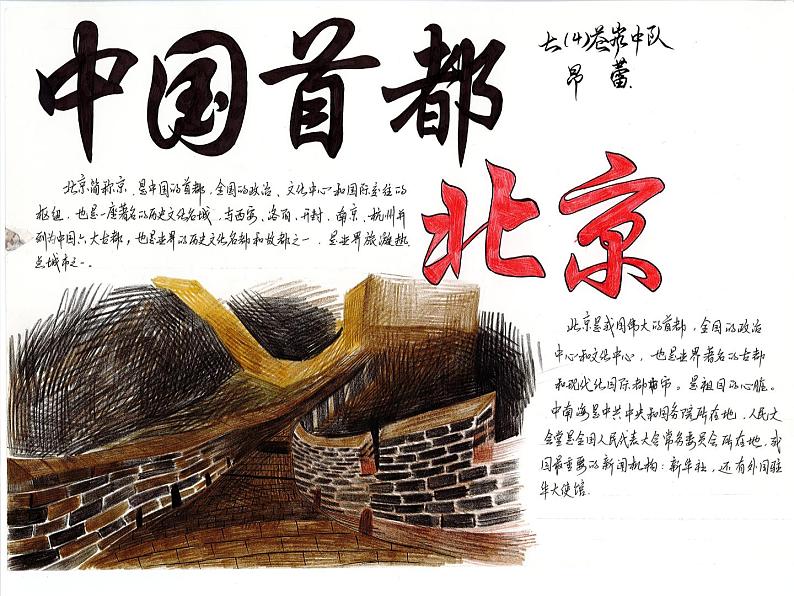 中国首都
七(4)苍岩中队
昂 蕾
北京
北京简称京、是中国的首都,全国的政治、文化中心和国际交往的
枢纽,也是一座著名的历史文化名城,与西安、洛阳、开封、南京、杭州并
列为中国六大古都,也是世界的历史文化名都和故都之一.是世界旅游热
点城市之一。
北京是我国伟大的首都,全国的政治
中心和文化中心,也是世界著名的古都
和现代化国际都市。是祖国的心脏。
中南海是中共中央和国务院所在地,人民大
会堂是全国人民代表大会常务委员会所在地,我
国最重要的新闻机构:新华社,还有外国驻
华大使馆.